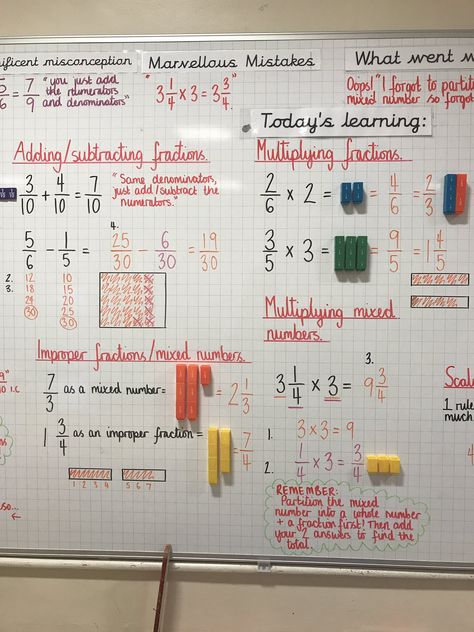 ificent misconception
Marvellous Mistakes
What went w
5/6 = 7/9 "you just add
the numerators
and denominators"
"3 1/4 × 3 = 3 3/4"
Oops! "I forgot to partiti
mixed number so forgot
Today's learning:
Adding/subtracting fractions.
3/10 + 4/10 = 7/10
"Same denominators,
just add/subtract the
numerators."
4.
5/6 - 1/5 = 25/30 - 6/30 = 19/30
2. 12 10
3. 18 15
24 20
30 25
30
Improper fractions/mixed numbers.
7/3 as a mixed number = = 2 1/3
1 3/4 as an improper fraction = = 7/4
1 2 3 4 5 6 7
Multiplying fractions.
2/6 × 2 = = 4/6 = 2/3
3/5 × 3 = = 9/5 = 1 4/5
Multiplying mixed
numbers.
3.
3 1/4 × 3 = 9 3/4
1. 3 × 3 = 9
2. 1/4 × 3 = 3/4
REMEMBER:
Partition the mixed
number into a whole number
+ a fraction first! Then add
your 2 answers to find the
total.
Scale
1 rule
much
so...